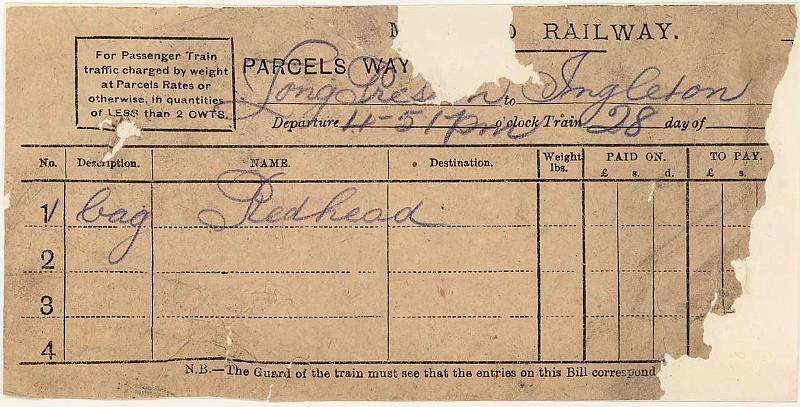 RAILWAY.
For Passenger Train
traffic charged by weight
at Parcels Rates or
otherwise, in quantities
of LESS than 2 OWTS.
PARCELS WAY
Long Pres n to Ingleton
Departure 4-51 pm o'clock Train 28 day of
No. Description. NAME. Destination. Weight lbs. PAID ON. TO PAY.
£ s. d. £ s.
1 1 bag Redhead
2
3
4
N.B.—The Guard of the train must see that the entries on this Bill correspond